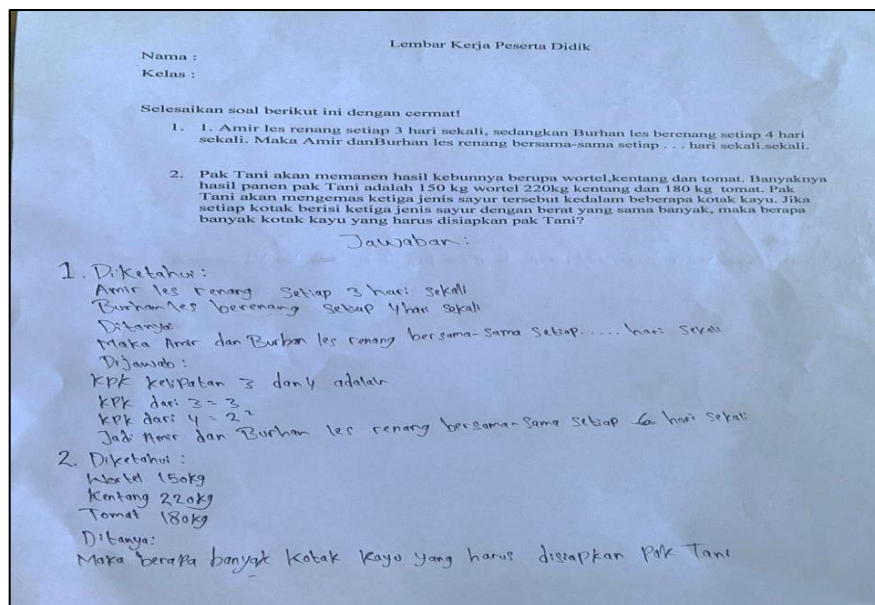 Lembar Kerja Peserta Didik
Nama :
Kelas :
Selesaikan soal berikut ini dengan cermat!
1. 1. Amir les renang setiap 3 hari sekali, sedangkan Burhan les berenang setiap 4 hari
sekali. Maka Amir danBurhan les renang bersama-sama setiap . . . hari sekali.sekali.
2. Pak Tani akan memanen hasil kebunnya berupa wortel,kentang dan tomat. Banyaknya
hasil panen pak Tani adalah 150 kg wortel 220kg kentang dan 180 kg tomat. Pak
Tani akan mengemas ketiga jenis sayur tersebut kedalam beberapa kotak kayu. Jika
setiap kotak berisi ketiga jenis sayur dengan berat yang sama banyak, maka berapa
banyak kotak kayu yang harus disiapkan pak Tani?
Jawaban:
1. Diketahui:
Amir les renang setiap 3 hari sekali
Burhan les berenang setiap 4 hari sekali
Ditanya:
Maka Amir dan Burhan les renang bersama-sama setiap..... hari sekali
Dijawab:
KPK kelipatan 3 dan 4 adalah
KPK dari 3 = 3
KPK dari 4 = 2²
Jadi Amir dan Burhan les renang bersama-sama setiap 6 hari sekali
2. Diketahui:
Wortel 150kg
Kentang 220kg
Tomat 180kg
Ditanya:
Maka berapa banyak kotak kayu yang harus disiapkan Pak Tani